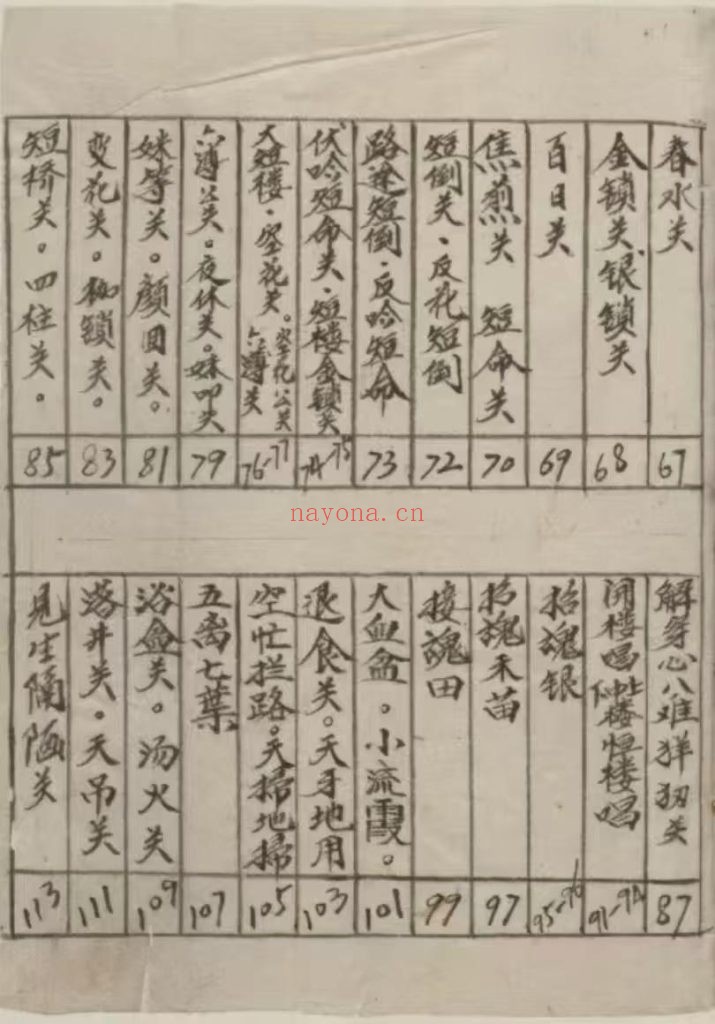 春水关
67
金锁关银锁关
68
百日关
69
焦煎关 短命关
70
短倒关、反花短倒
72
路途短倒、反吟短命
73
伏吟短命关、短楼金锁关
74-75
大短楼、空花关。空花公关 六薄关
76-77
六薄公关。夜休关。妹叩关
79
妹等关。颜回关。
81
变花关。枷锁关。
83
短桥关。四柱关。
85
nayona.cn
解 心八难 关
87
开楼唱 楼恒楼唱
91-94
招魂银
95-96
招魂禾苗
97
接魂田
99
大血盆。小流霞。
101
退食关。天牙地用
103
空忙拦路。天掃地掃
105
五离七葉
107
浴盆关。汤火关
109
落井关。天吊关
111
见生隔陋关
113